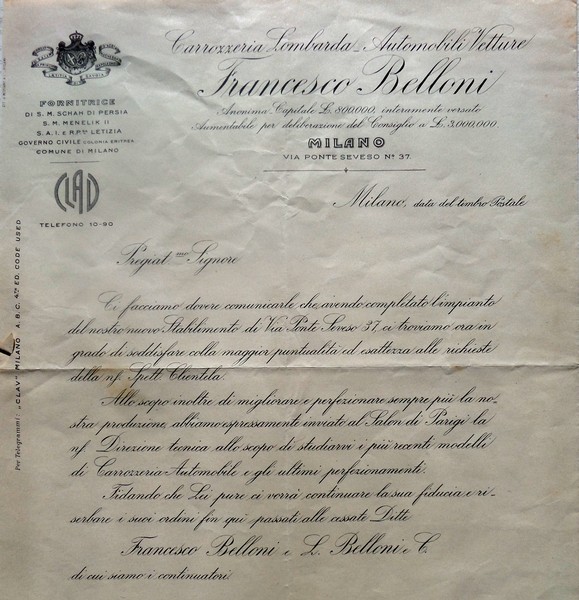 Carrozzeria Lombarda Automobili Vetture
Francesco Belloni
Anonima Capitale L. 800,000, interamente versato
Aumentabile per deliberazione del Consiglio a L. 3,000,000.
MILANO
VIA PONTE SEVESO Nº 37.
LETITIA SAVOIA
FORNITRICE
DI S. M. SCHAH DI PERSIA
S. M. MENELIK II
S. A. I. e R. P.ssa LETIZIA
GOVERNO CIVILE COLONIA ERITREA
COMUNE DI MILANO
TELEFONO 10-90
Per Telegrammi: "CLAV" MILANO A. B. C. 4th ED. CODE USED
Milano, data del timbro Postale
Pregiat mo Signore
Ci facciamo dovere comunicarle che, avendo completato l'impianto
del nostro nuovo Stabilimento di Via Ponte Seveso 37, ci troviamo ora in
grado di soddisfare colla maggior puntualità ed esattezza alle richieste
della ns. Spett. Clientela.
Allo scopo inoltre di migliorare e perfezionare sempre più la no-
stra produzione, abbiamo espressamente inviato al Salon di Parigi la
ns. Direzione tecnica allo scopo di studiarvi i più recenti modelli
di Carrozzeria-Automobile e gli ultimi perfezionamenti.
Fidando che Lei pure ci vorrà continuare la sua fiducia e ri-
serbare i suoi ordini fin qui passati alle cessate Ditte
Francesco Belloni e L. Belloni e C.
di cui siamo i continuatori